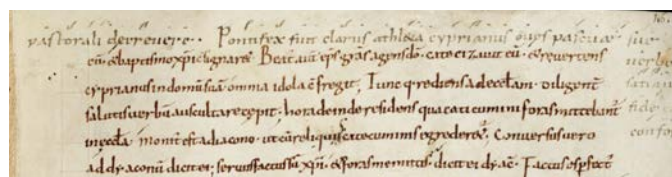 pastorali decrevere. Pontifex fuit clarus athleta cyprianus oves pascuae sue
eū. & baptismo xp̄i signare. Beat. aut̄ ep̄s grās agens dō. catecizavit eū. & revertens
cyprianus in domū suā. omnia idola c̄fregit; Tunc q. rediens ad eccl̄am. diligent̄
salutis verbū auscultare cepit; hora deinde residens qua caticumini foras mittebant̄
in eccl̄a. monit. est a diacono. ut cū reliquis catecuminis egrederet̄; Conversus vero
ad dyaconū dicit ei; servus factus sū xp̄i. & foras me mittis; dicit ei dyac̄.